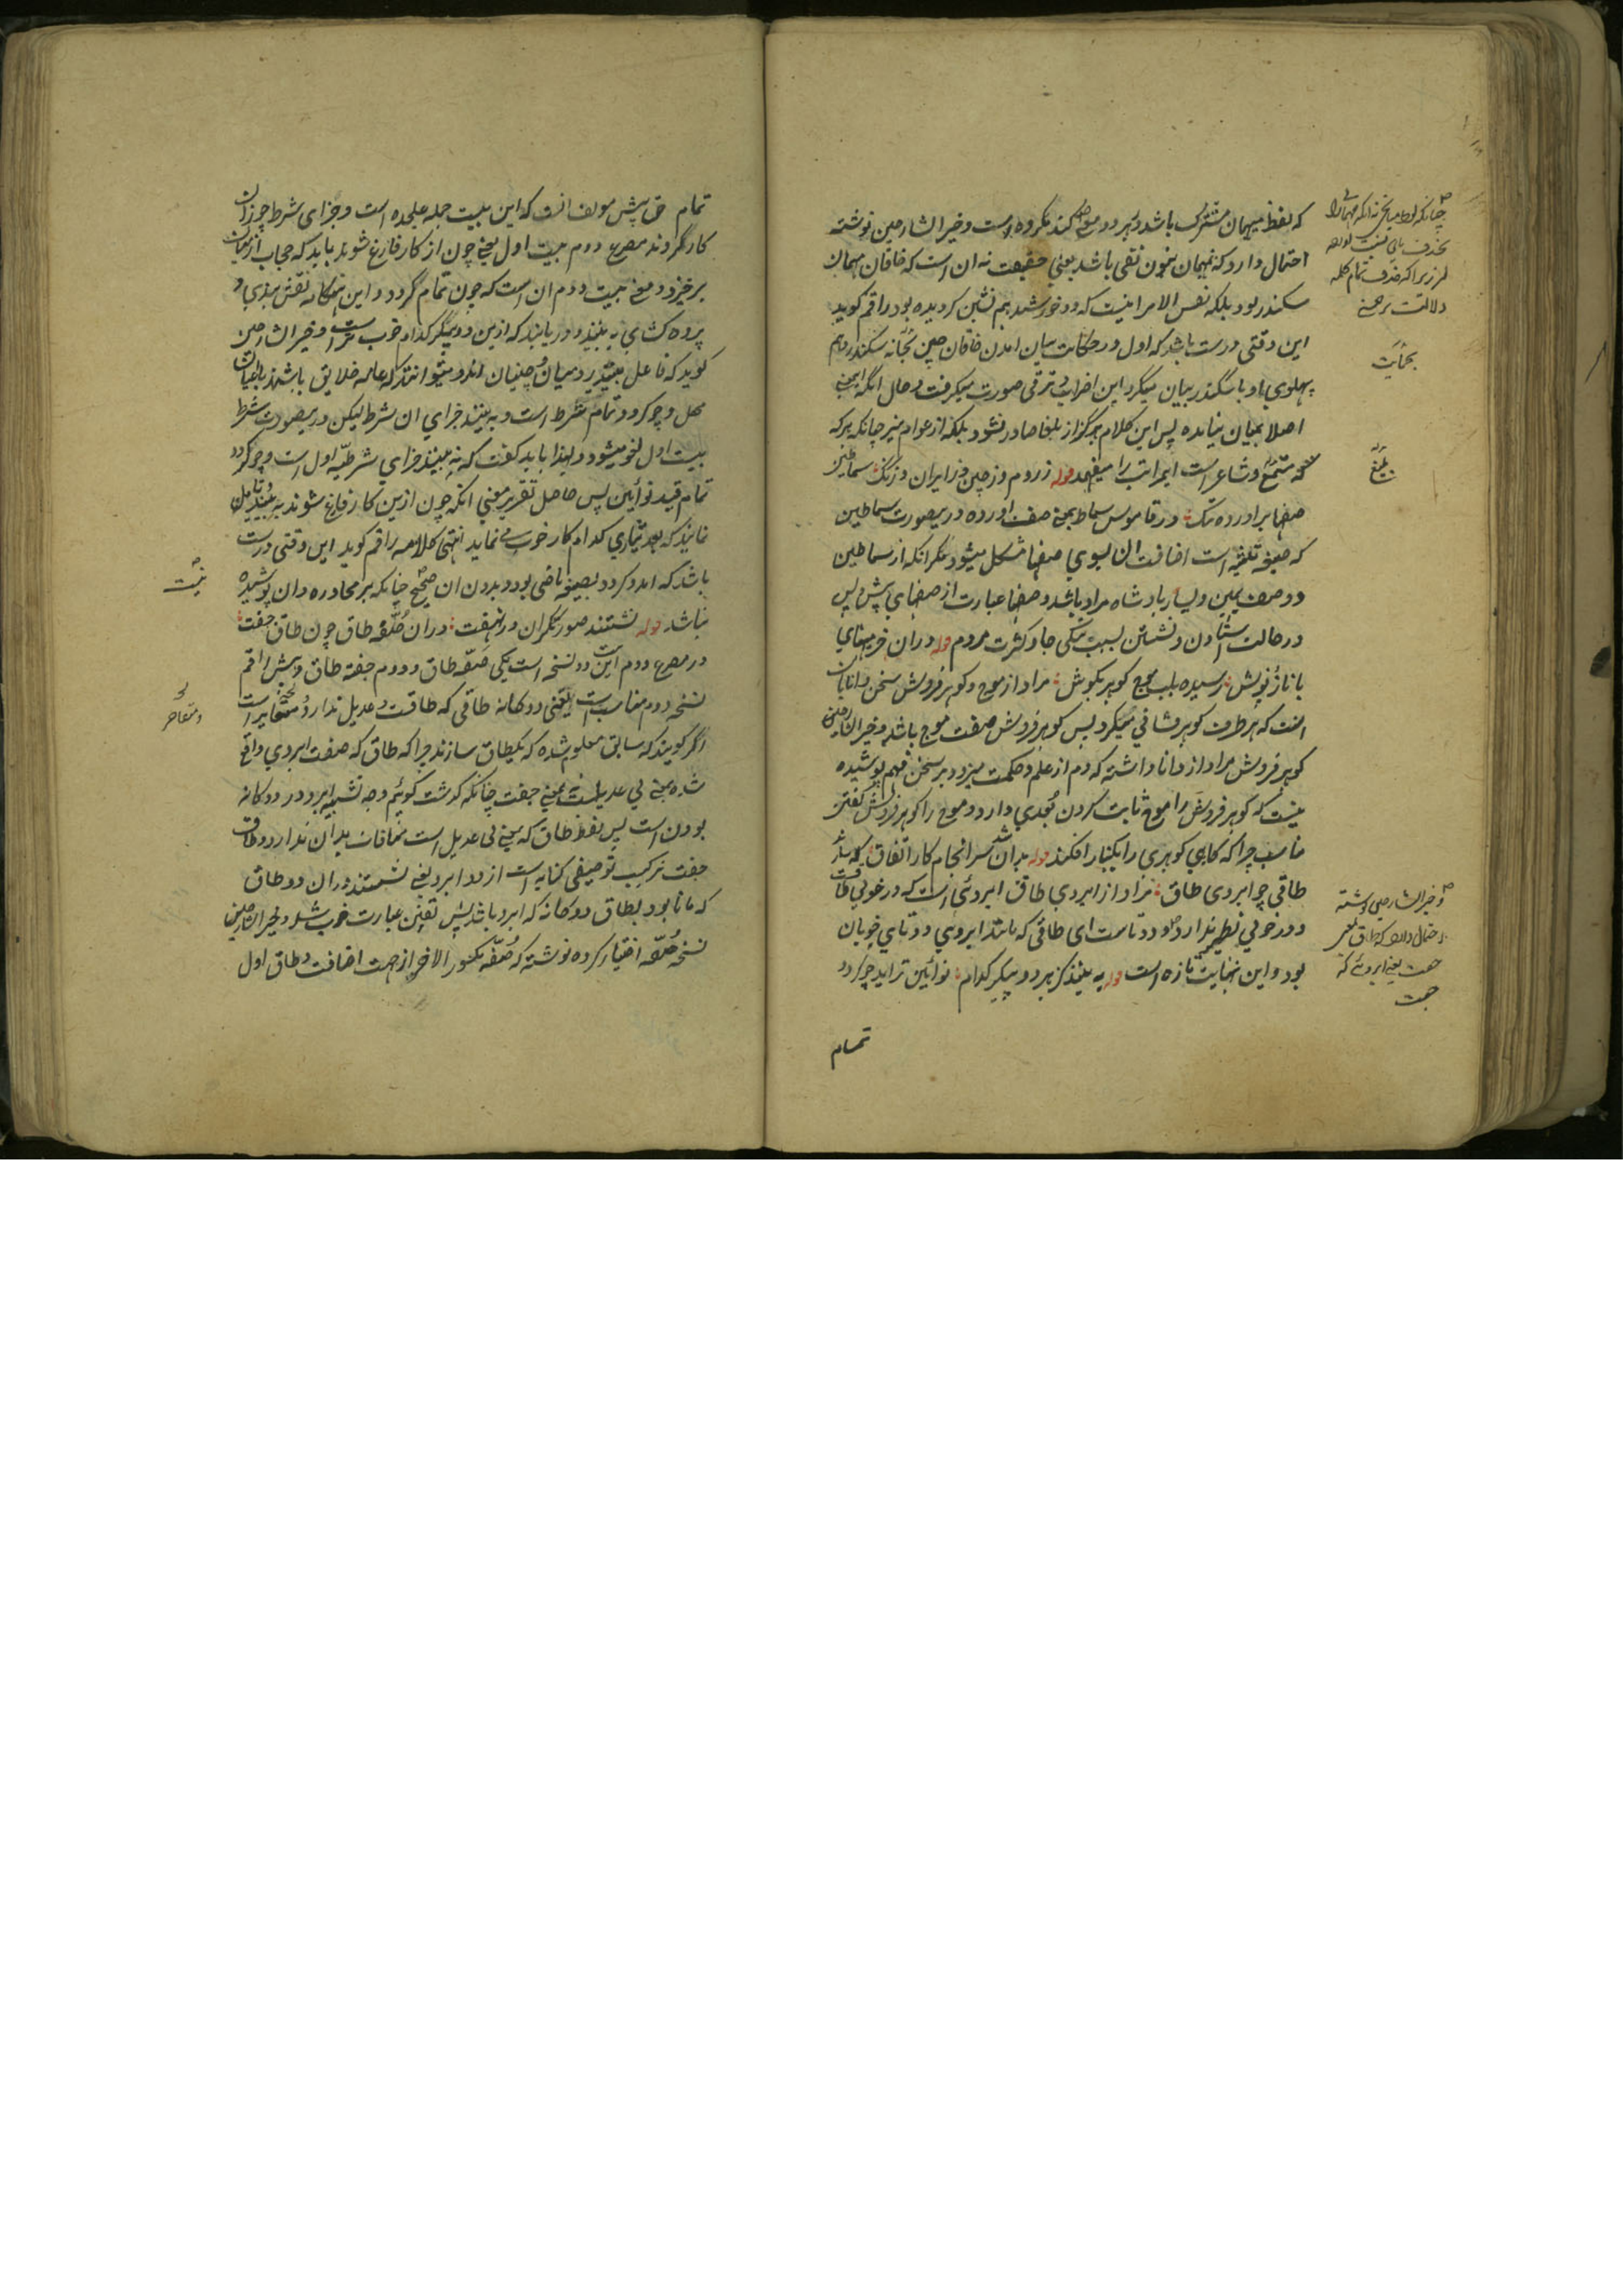 که لفظ میهمان مشترک باشد و هر دو موضع کند مکروه است و خیر الشارحین نوشته
احتمال دارد که نمیهمان بنون نفی باشد یعنی حقیقت نه ان است که خاقان میهمان
سکندر بود بلکه نفس الامر اینست که دو خورشید بهم نشین کردیده بود راقم کوید
این وقتی درست باشد که اول در حکایت بیان امدن خاقان چین بخانه سکندر و هم
پهلوی او با سکندر بیان میکرد این اضراب و ترقی صورت میکرفت و حال انکه اینمعنی
اصلا بمیان نیامده پس این کلام هرکز از بلغا صادر نشود بلکه از عوام نیز چنانکه هر که
متتبع و شاعر است این مراتب را میفهمد قوله ز روم و ز چین و ز ایران و زنک سماطین
صفها براورده تنک در قاموس سماط بمعنی صف اورده درینصورت سماطین
که صیغه تثنیه است اضافت ان بسوی صفها مشکل میشود مکر انکه از سماطین
دو صف یمین و یسار بادشاه مراد باشد و صفها عبارت از صفهای پیش و پس
در حالت ستادن و نشستن بسبب تنکی جا و کثرت مردم قوله دران خرمیهای
با ناز و نوش رسیده بلب موج کوهر بکوش مراد از موج و کوهر فروش سخن دانایان
است که هر طرف کوهر فشانی میکرد پس کوهر فروش صفت موج باشد و خیر الشارحین
کوهر فروش مراد از دانا داشته که دم از علم و حکمت میزد و بر سخن فهم پوشیده
نیست که کوهر فروش را موج ثابت کردن بعدی دارد و موج را کوهر فروش کفتن
مناسب چرا که کاهی کوهری را بکنار افکند قوله بران شد سرانجام کار اتفاق که سازند
طاقی چو ابروی طاق مراد از ابروی طاق ابروئی است که در خوبی طاقت
و در خوبی نظیر ندارد و دو تاست ای طاقی که مانند ابروی دو تای خوبان
بود و این نهایت تازه است قوله به بینند کز هر دو پیکر کدام نوائین تر اید چو کردد
تمام
بحکایت
بلیغ
و خیر الشارحین نوشته
احتمال دارد که طاق بمعنی
جفت یعنی ابروئی که
جفت
تمام پیش مولف انست که این بیت جمله علیحده است و جزای شرط چو زان
کار کردند مصرع دوم بیت اول یعنی چون از کار فارغ شوند باید که حجاب از میان
برخیزد و معنی بیت دوم ان است که چون تمام کردد و این هنکامه نقش بندی و
پرده کشای به بینند و دریابند که ازین دو پیکر کدام خوب تر است و خیر الشارحین
کوید که فاعل بینند رومیان و چینیان اند و میتوانند که عامه خلایق باشند
محل و چو کردد تمام شرط است و به بینند جزای ان شرط لیکن درینصورت شرط
بیت اول لغو میشود و لهذا باید کفت که به بینند جزای شرطیه اول است و چو کردد
تمام قید نوائین پس حاصل تقریر معنی انکه چون ازین کار فارغ شوند به بینند و تامل
نمایند که بعد تیاری کدام کار خوب می نماید انتهی کلامه راقم کوید این وقتی درست
باشد که امد و کردد بصیغه ماضی بود و بدون ان صحیح نیست چنانکه بر محاوره دان پوشیده
نباشد قوله نشستند صورتکران در نهفت دران صفه طاق چون طاق جفت
در مصرع دوم این بیت دو نسخه است یکی صفه طاق و دوم جفته طاق و پیش راقم
نسخه دوم مناسب است یعنی دوکانه طاقی که طاقت و عدیل ندارد
اکر کویند که سابق معلوم شده که یکطاق سازند چرا که طاق که صفت ابروی واقع
شده بمعنی بی عدیل است نه بمعنی جفت چنانکه کذشت کوئیم وجه تشبیه ابرو در دوکانه
بودن است پس لفظ طاق که بمعنی بی عدیل است منافات بدان ندارد و طاق
جفت ترکیب توصیفی کنایه است از دو ابرو یعنی نشستند دران دو طاق
که مانا بود بطاق دوکانه که ابرو باشد پس عبارت خوب شد و خیر الشارحین
نسخه صفه اختیار کرده نوشته که صفه مکسور الاخر از جهت اضافت و طاق اول
نیست